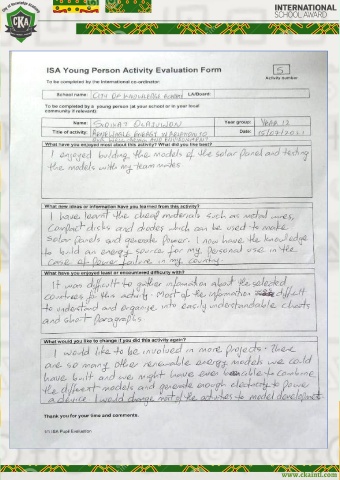 INTERNATIONAL
SCHOOL AWARD
CKA
ISA Young Person Activity Evaluation Form
5
Activity number
To be completed by the International co-ordinator:
School name: CITY OF KNOWLEDGE ACADEMY LA/Board:
To be completed by a young person (at your school or in your local community if relevant)
Name: OLAJUWON Year group: YEAR 12
Title of activity: RENEWABLE ENERGY Date: 15/07/2021
What have you enjoyed most about this activity? What did you like best?
I enjoyed building the models of the solar panel and testing
the models with my team mates
What new ideas or information have you learned from this activity?
I have learnt the cheap materials such as metal wires,
Compact disks and diodes which can be used to make
Solar panels and generate power. I now have the knowledge
to build an energy source for my personal use in the
case of power failure in my country
What have you enjoyed least or encountered difficulty with?
It was difficult to gather information about the selected
countries for this activity. Most of the information difficult
to understand and organise into easily understandable charts
and short paragraphs.
What would you like to change if you did this activity again?
I would like to be involved in more projects. There
are so many other renewable energy models we could
have built and we might have even been able to combine
the different models and generate enough electricity to power
a device. I would change most of the activities to model development
Thank you for your time and comments.
ISA Pupil Evaluation
www.ckaintl.com